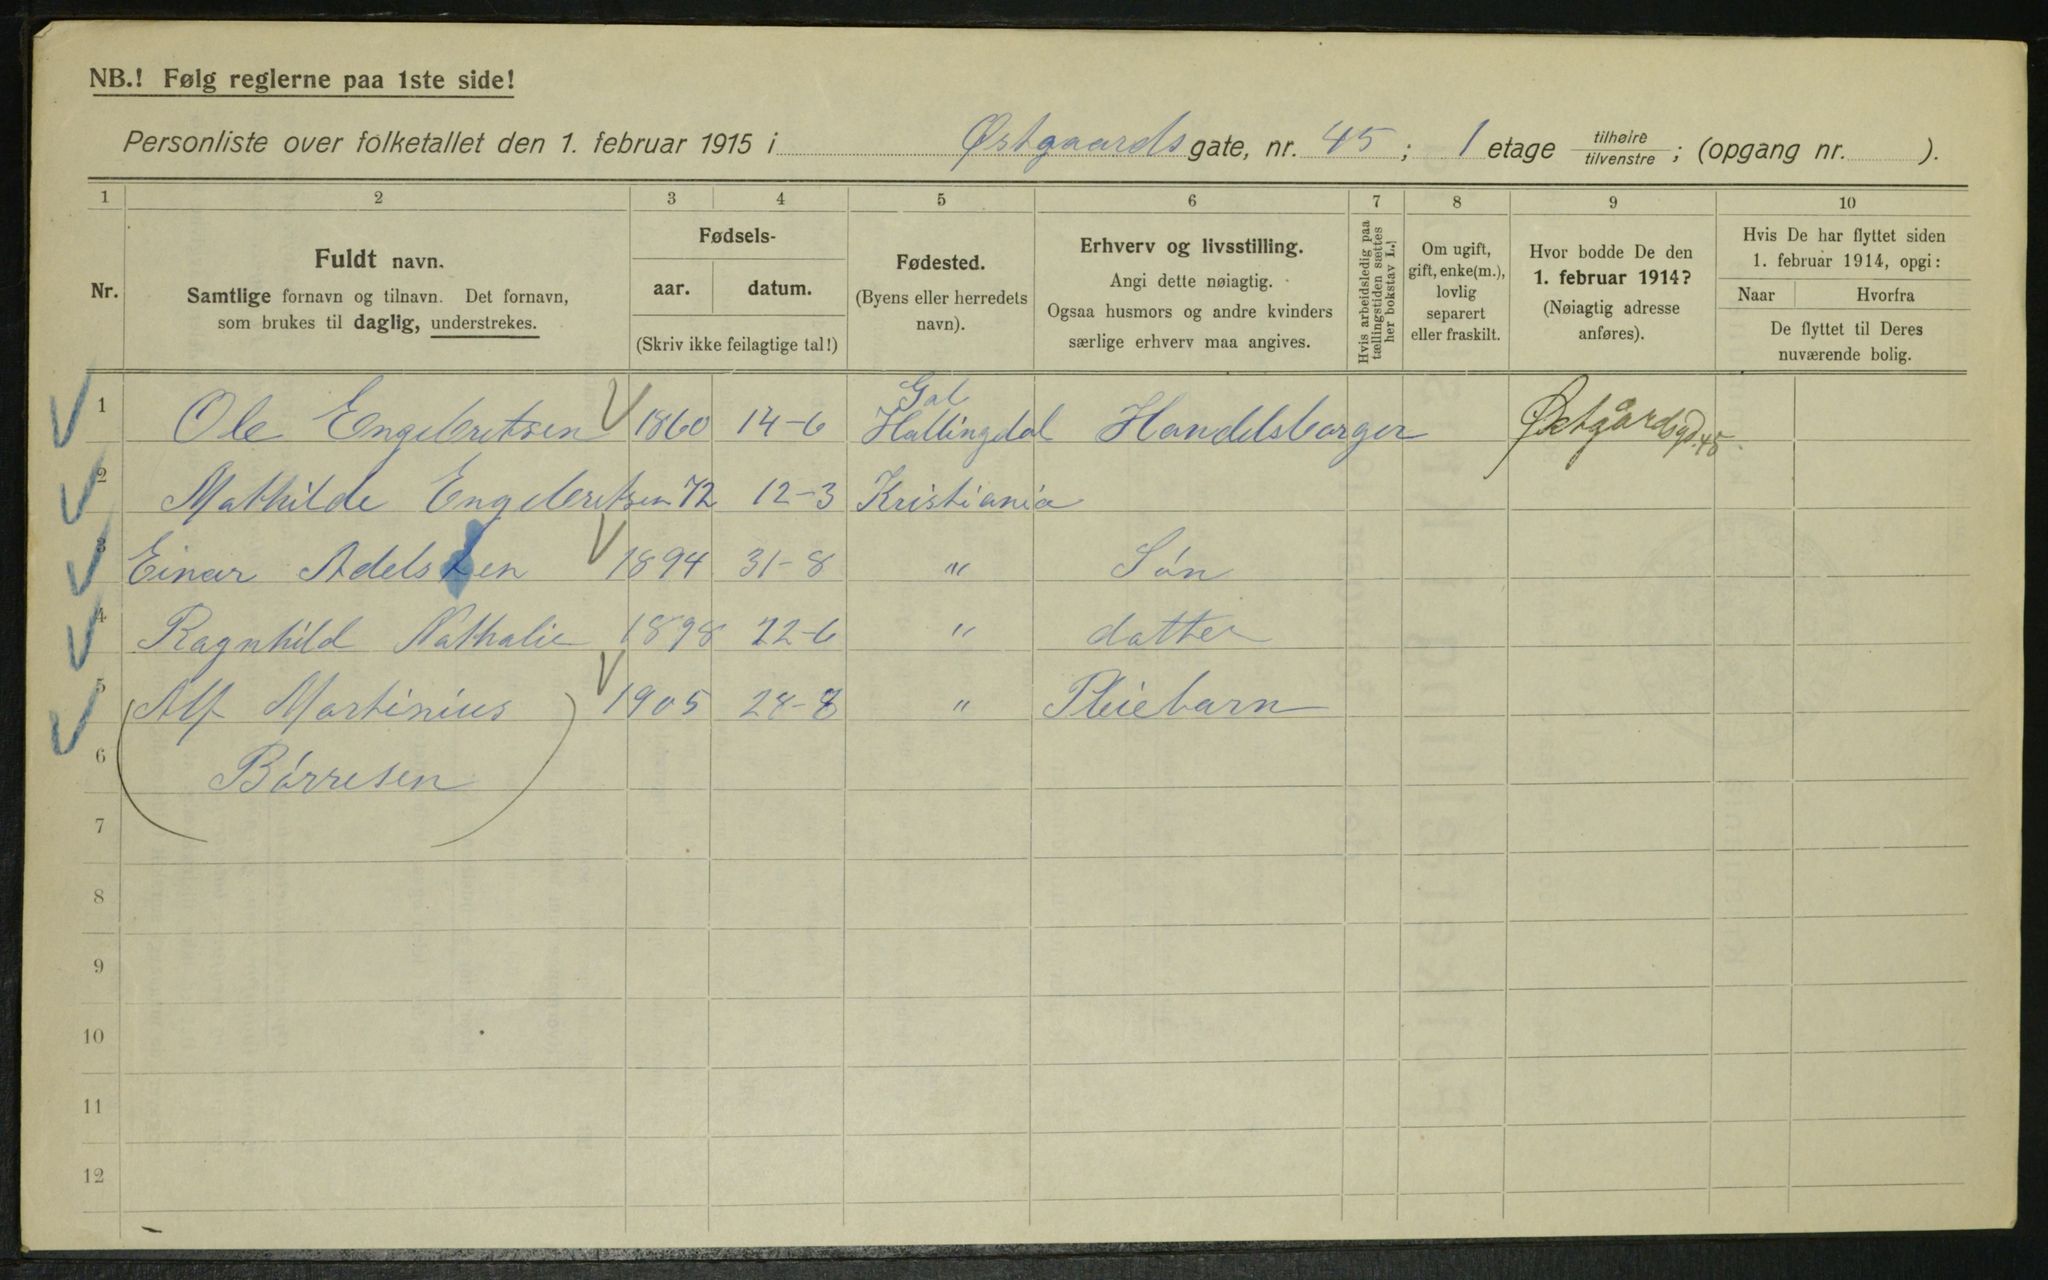 NB.! Følg reglerne paa 1ste side!
Personliste over folketallet den 1. februar 1915 i Østgaards gate, nr. 45; 1 etage tilhøire tilvenstre; (opgang nr. ).
1 2 3 4 5 6 7 8 9 10
Nr.
Fuldt navn.
Samtlige fornavn og tilnavn. Det fornavn,
som brukes til daglig, understrekes.
Fødsels-
aar. datum.
(Skriv ikke feilagtige tal!)
Fødested.
(Byens eller herredets
navn).
Erhverv og livsstilling.
Angi dette nøiagtig.
Ogsaa husmors og andre kvinders
særlige erhverv maa angives.
Hvis arbeidsledig paa
tællingstiden sættes
her bokstav L.)
Om ugift,
gift, enke(m.),
lovlig
separert
eller fraskilt.
Hvor bodde De den
1. februar 1914?
(Nøiagtig adresse
anføres).
Hvis De har flyttet siden
1. februar 1914, opgi:
Naar Hvorfra
De flyttet til Deres
nuværende bolig.
Gol
1 Ole Engebretsen 1860 14-6 Hallingdal Handelsborger Østgårdsgd. 45.
2 Mathilde Engebretsen 72 12-3 Kristiania
3 Einar Adelsten 1894 31-8 " Søn
4 Ragnhild Nathalie 1898 22-6 " datter
5 (Alf Martinius 1905 28-8 " Pleiebarn
6 Børresen)
7
8
9
10
11
12